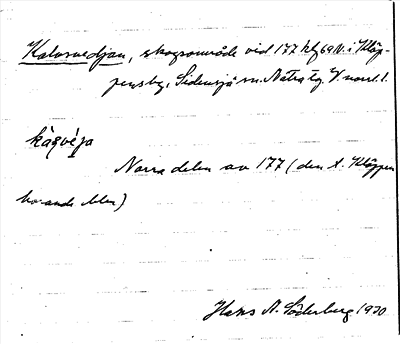 Kalvsvedjan, skogsområde vid 177 kfg 69 N. i Kläp-
pensby, Sidensjö sn. Nätra tg. V. norrl.
kàqvéja
Norra delen av 177 (den t. Kläppen
hörande delen)
Hans A. Söderberg 1930